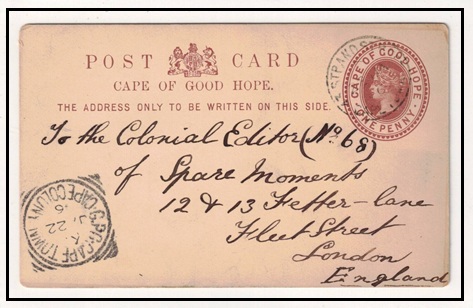 POST CARD
CAPE OF GOOD HOPE.
THE ADDRESS ONLY TO BE WRITTEN ON THIS SIDE.
CAPE OF GOOD HOPE
ONE PENNY
STRAND S
To the Colonial Editor (No 68)
of Spare Moments
12 & 13 Fetter-lane
Fleet Street
London
England
G.P.O. CAPE TOWN
CAPE COLONY
22